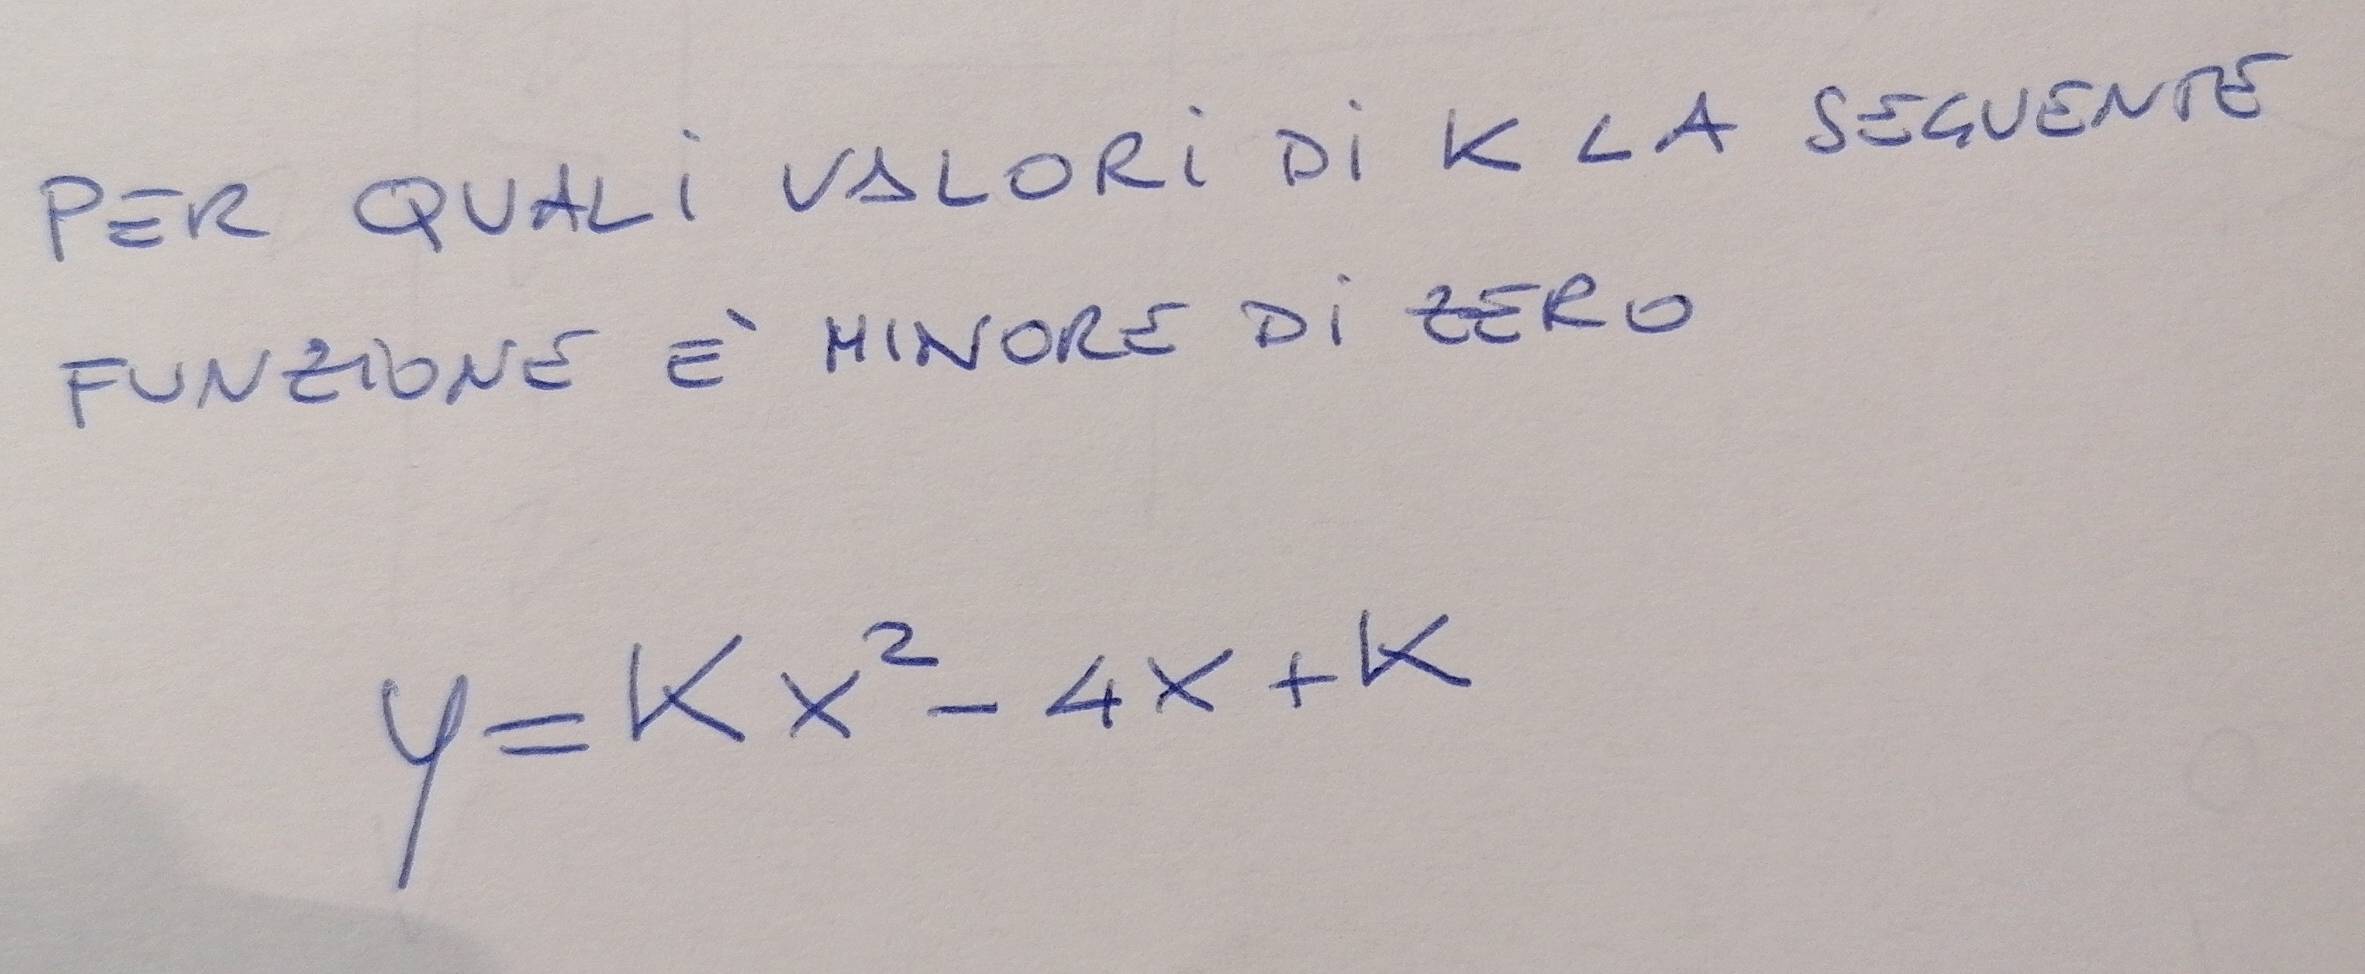 PER QUALI VALORI DI K LA SEGUENTE
FUNZIONE E' MINORE DI ZERO
y=Kx²-4x+K